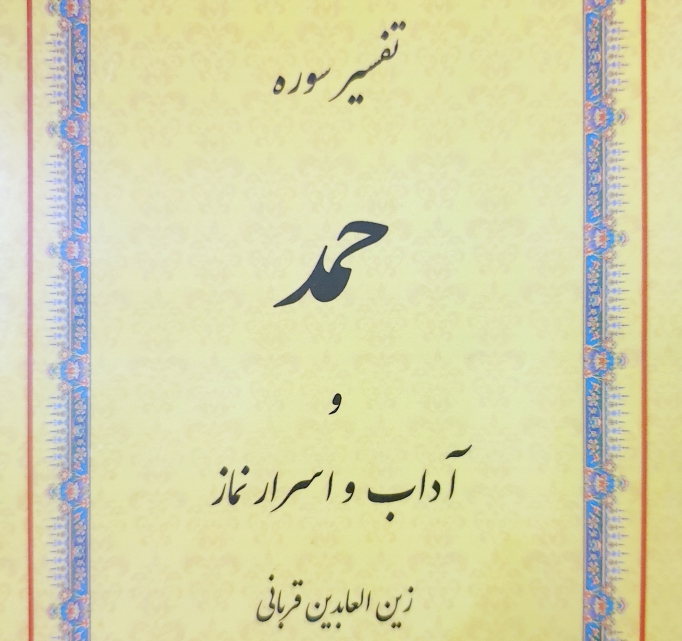 تفسیر سوره
حمد
و
آداب و اسرار نماز
زین العابدین قربانی